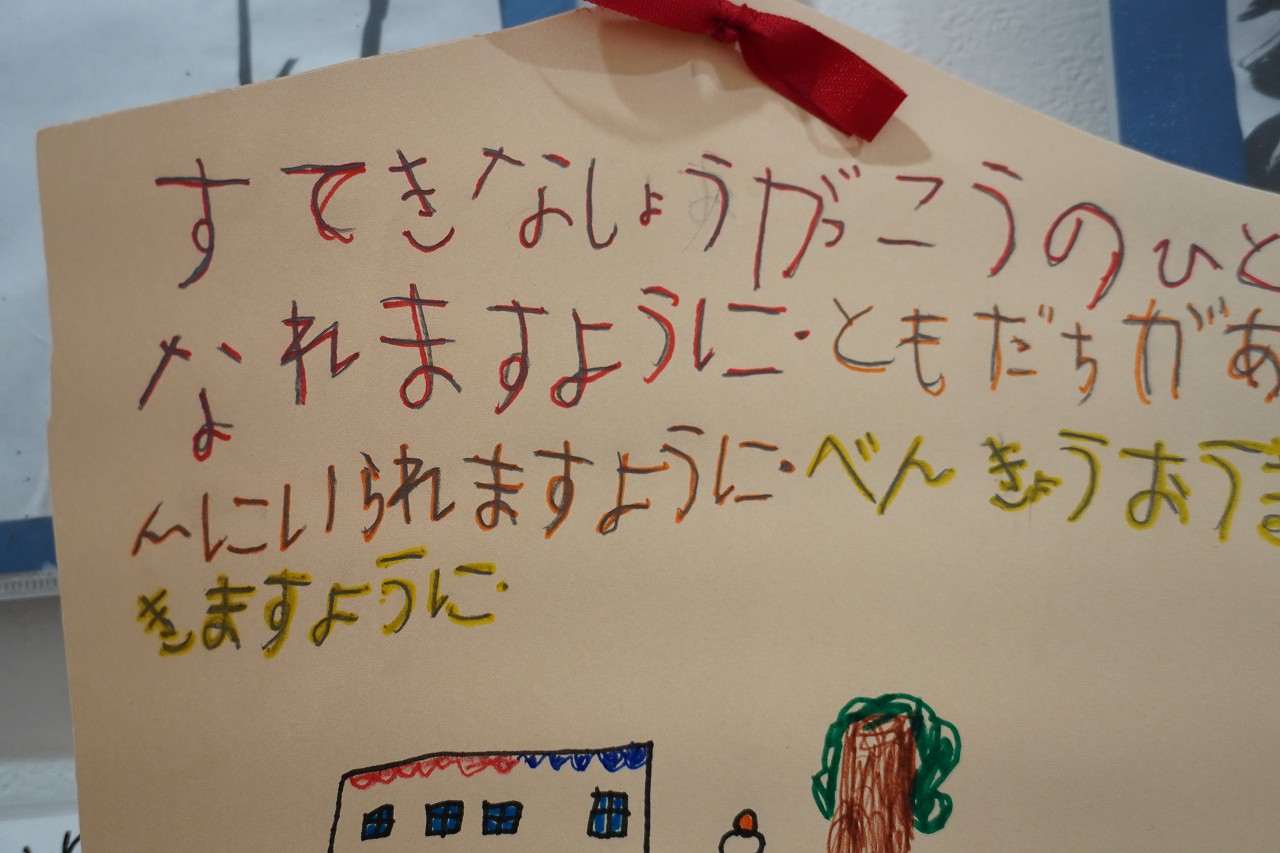 すてきなしょうがっこうのひと
なれますように.ともだちがあ
んにいられますように.べんきょうおうま
きますように.